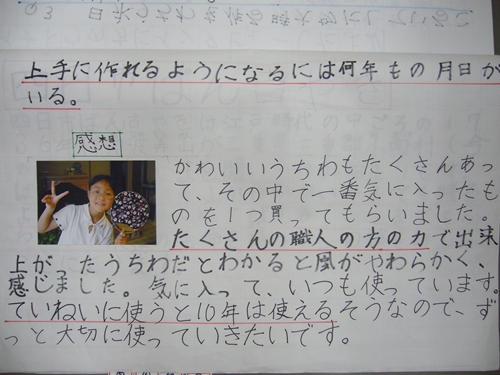 上手に作れるようになるには何年もの月日が
いる。
感想
かわいいうちわもたくさんあっ
て、その中で一番気に入ったも
のを1つ買ってもらいました。
たくさんの職人の方の力で出来
上がったうちわだとわかると風がやわらかく、
感じました。気に入って、いつも使っています。
ていねいに使うと10年は使えるそうなので、ず
っと大切に使っていきたいです。